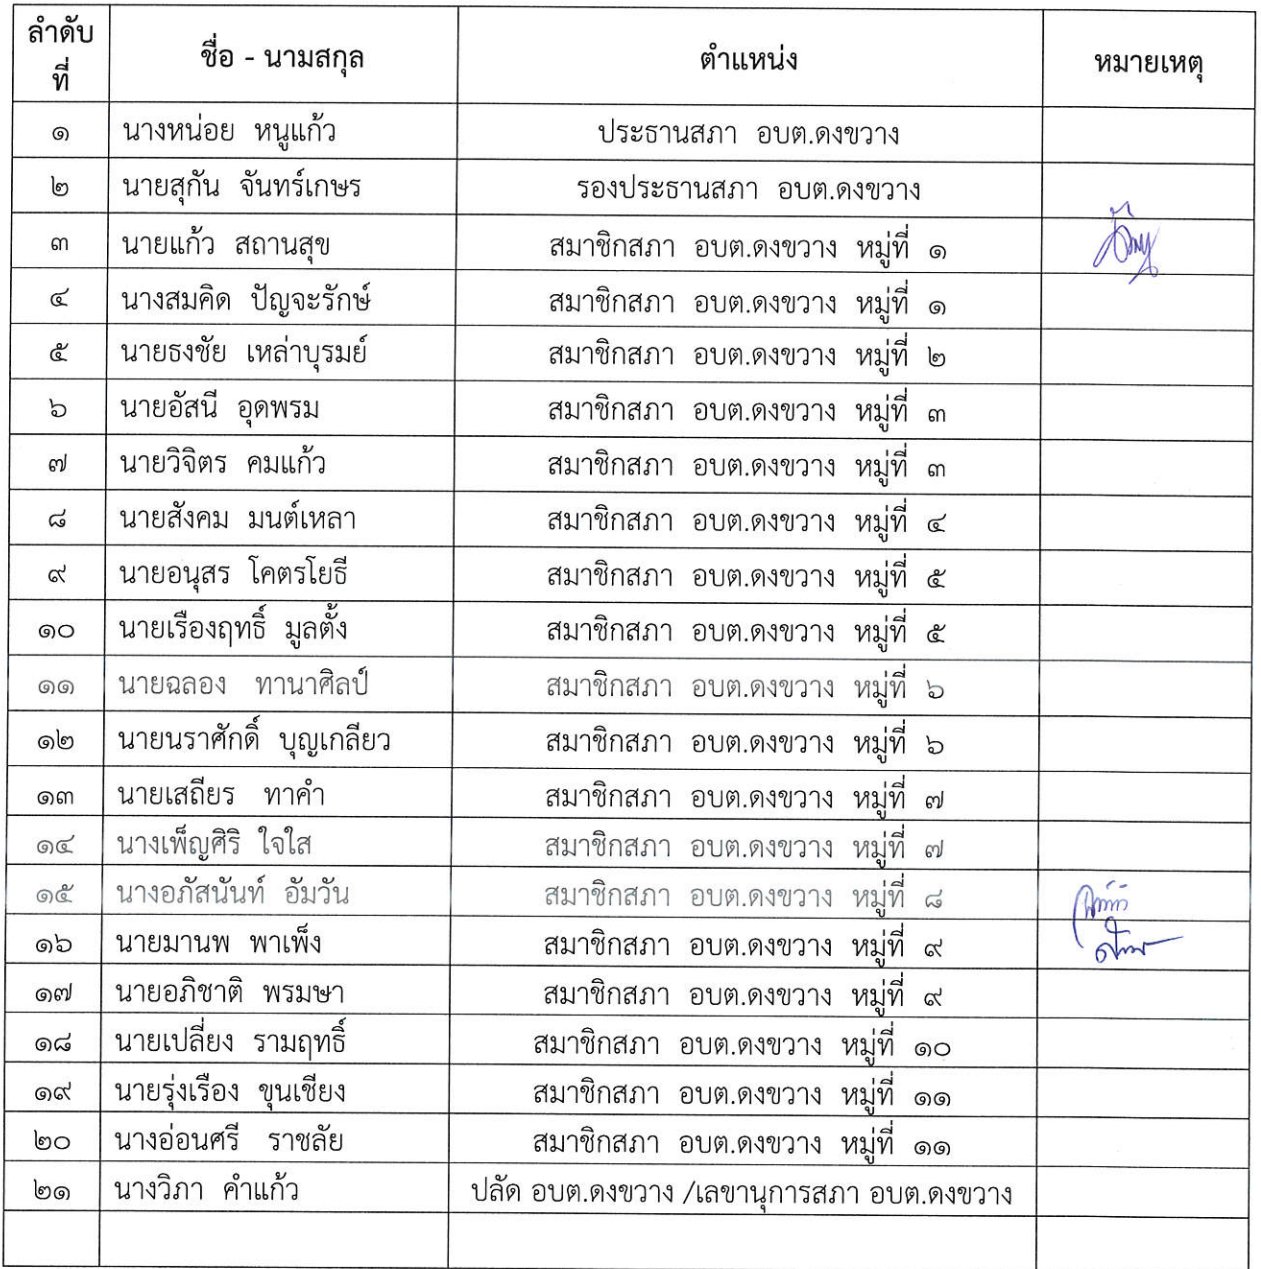 ลำดับที่ ชื่อ - นามสกุล ตำแหน่ง หมายเหตุ
๑ นางหน่อย หนูแก้ว ประธานสภา อบต.ดงขวาง
๒ นายสุกัน จันทร์เกษร รองประธานสภา อบต.ดงขวาง
๓ นายแก้ว สถานสุข สมาชิกสภา อบต.ดงขวาง หมู่ที่ ๑
๔ นางสมคิด ปัญจะรักษ์ สมาชิกสภา อบต.ดงขวาง หมู่ที่ ๑
๕ นายธงชัย เหล่าบุรมย์ สมาชิกสภา อบต.ดงขวาง หมู่ที่ ๒
๖ นายอัสนี อุดพรม สมาชิกสภา อบต.ดงขวาง หมู่ที่ ๓
๗ นายวิจิตร คมแก้ว สมาชิกสภา อบต.ดงขวาง หมู่ที่ ๓
๘ นายสังคม มนต์เหลา สมาชิกสภา อบต.ดงขวาง หมู่ที่ ๔
๙ นายอนุสร โคตรโยธี สมาชิกสภา อบต.ดงขวาง หมู่ที่ ๕
๑๐ นายเรืองฤทธิ์ มูลตั้ง สมาชิกสภา อบต.ดงขวาง หมู่ที่ ๕
๑๑ นายฉลอง ทานาศิลป์ สมาชิกสภา อบต.ดงขวาง หมู่ที่ ๖
๑๒ นายนราศักดิ์ บุญเกลียว สมาชิกสภา อบต.ดงขวาง หมู่ที่ ๖
๑๓ นายเสถียร ทาคำ สมาชิกสภา อบต.ดงขวาง หมู่ที่ ๗
๑๔ นางเพ็ญศิริ ใจใส สมาชิกสภา อบต.ดงขวาง หมู่ที่ ๗
๑๕ นางอภัสนันท์ อัมวัน สมาชิกสภา อบต.ดงขวาง หมู่ที่ ๘
๑๖ นายมานพ พาเพ็ง สมาชิกสภา อบต.ดงขวาง หมู่ที่ ๙
๑๗ นายอภิชาติ พรมษา สมาชิกสภา อบต.ดงขวาง หมู่ที่ ๙
๑๘ นายเปลี่ยง รามฤทธิ์ สมาชิกสภา อบต.ดงขวาง หมู่ที่ ๑๐
๑๙ นายรุ่งเรือง ขุนเชียง สมาชิกสภา อบต.ดงขวาง หมู่ที่ ๑๑
๒๐ นางอ่อนศรี ราชลัย สมาชิกสภา อบต.ดงขวาง หมู่ที่ ๑๑
๒๑ นางวิภา คำแก้ว ปลัด อบต.ดงขวาง /เลขานุการสภา อบต.ดงขวาง